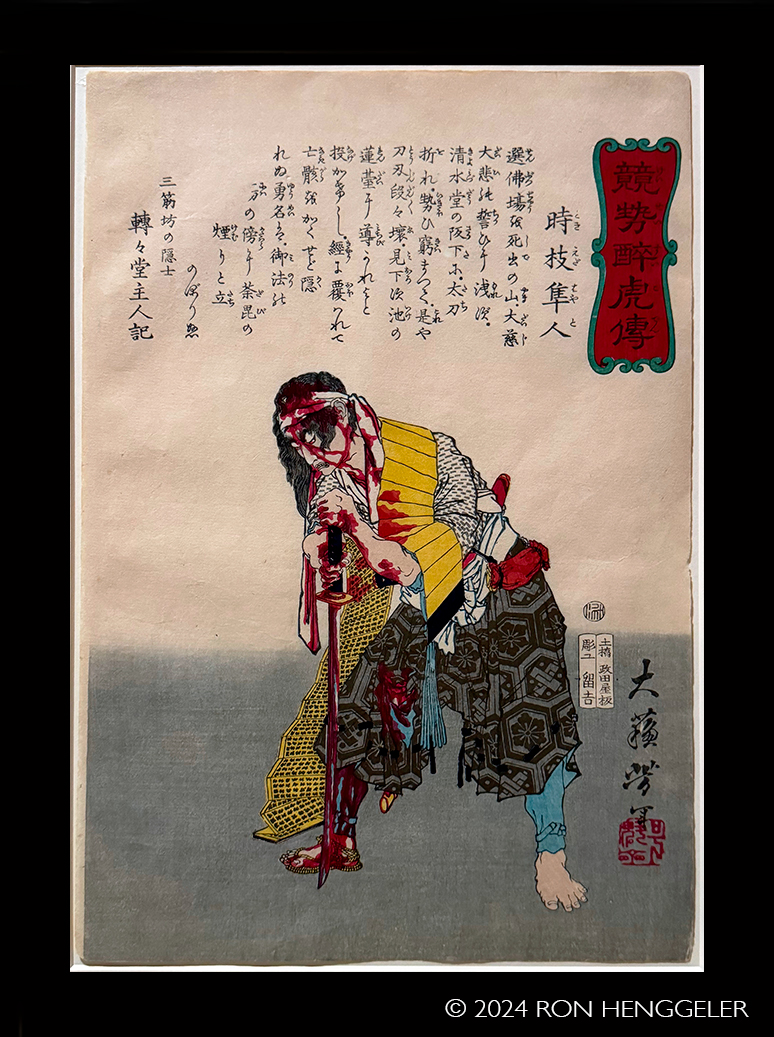 競勢酔虎傳
時枝隼人
選佛場を死出の山大慈
大悲の誓ひ
清水堂の阪下 太刀
折れ勢ひ窮まつて是や
刀刃段々壊 見下 池の
蓮臺 導かれ
投が如し 經に覆 れて
亡骸をかくせど隠
れぬ勇名 御法の
の傍 荼毘の
煙りと立
のぼり
三筋坊の隠士
轉々堂主人記
土橋 政田屋板
彫工 留吉
大蘓芳年
© 2024 RON HENGGELER